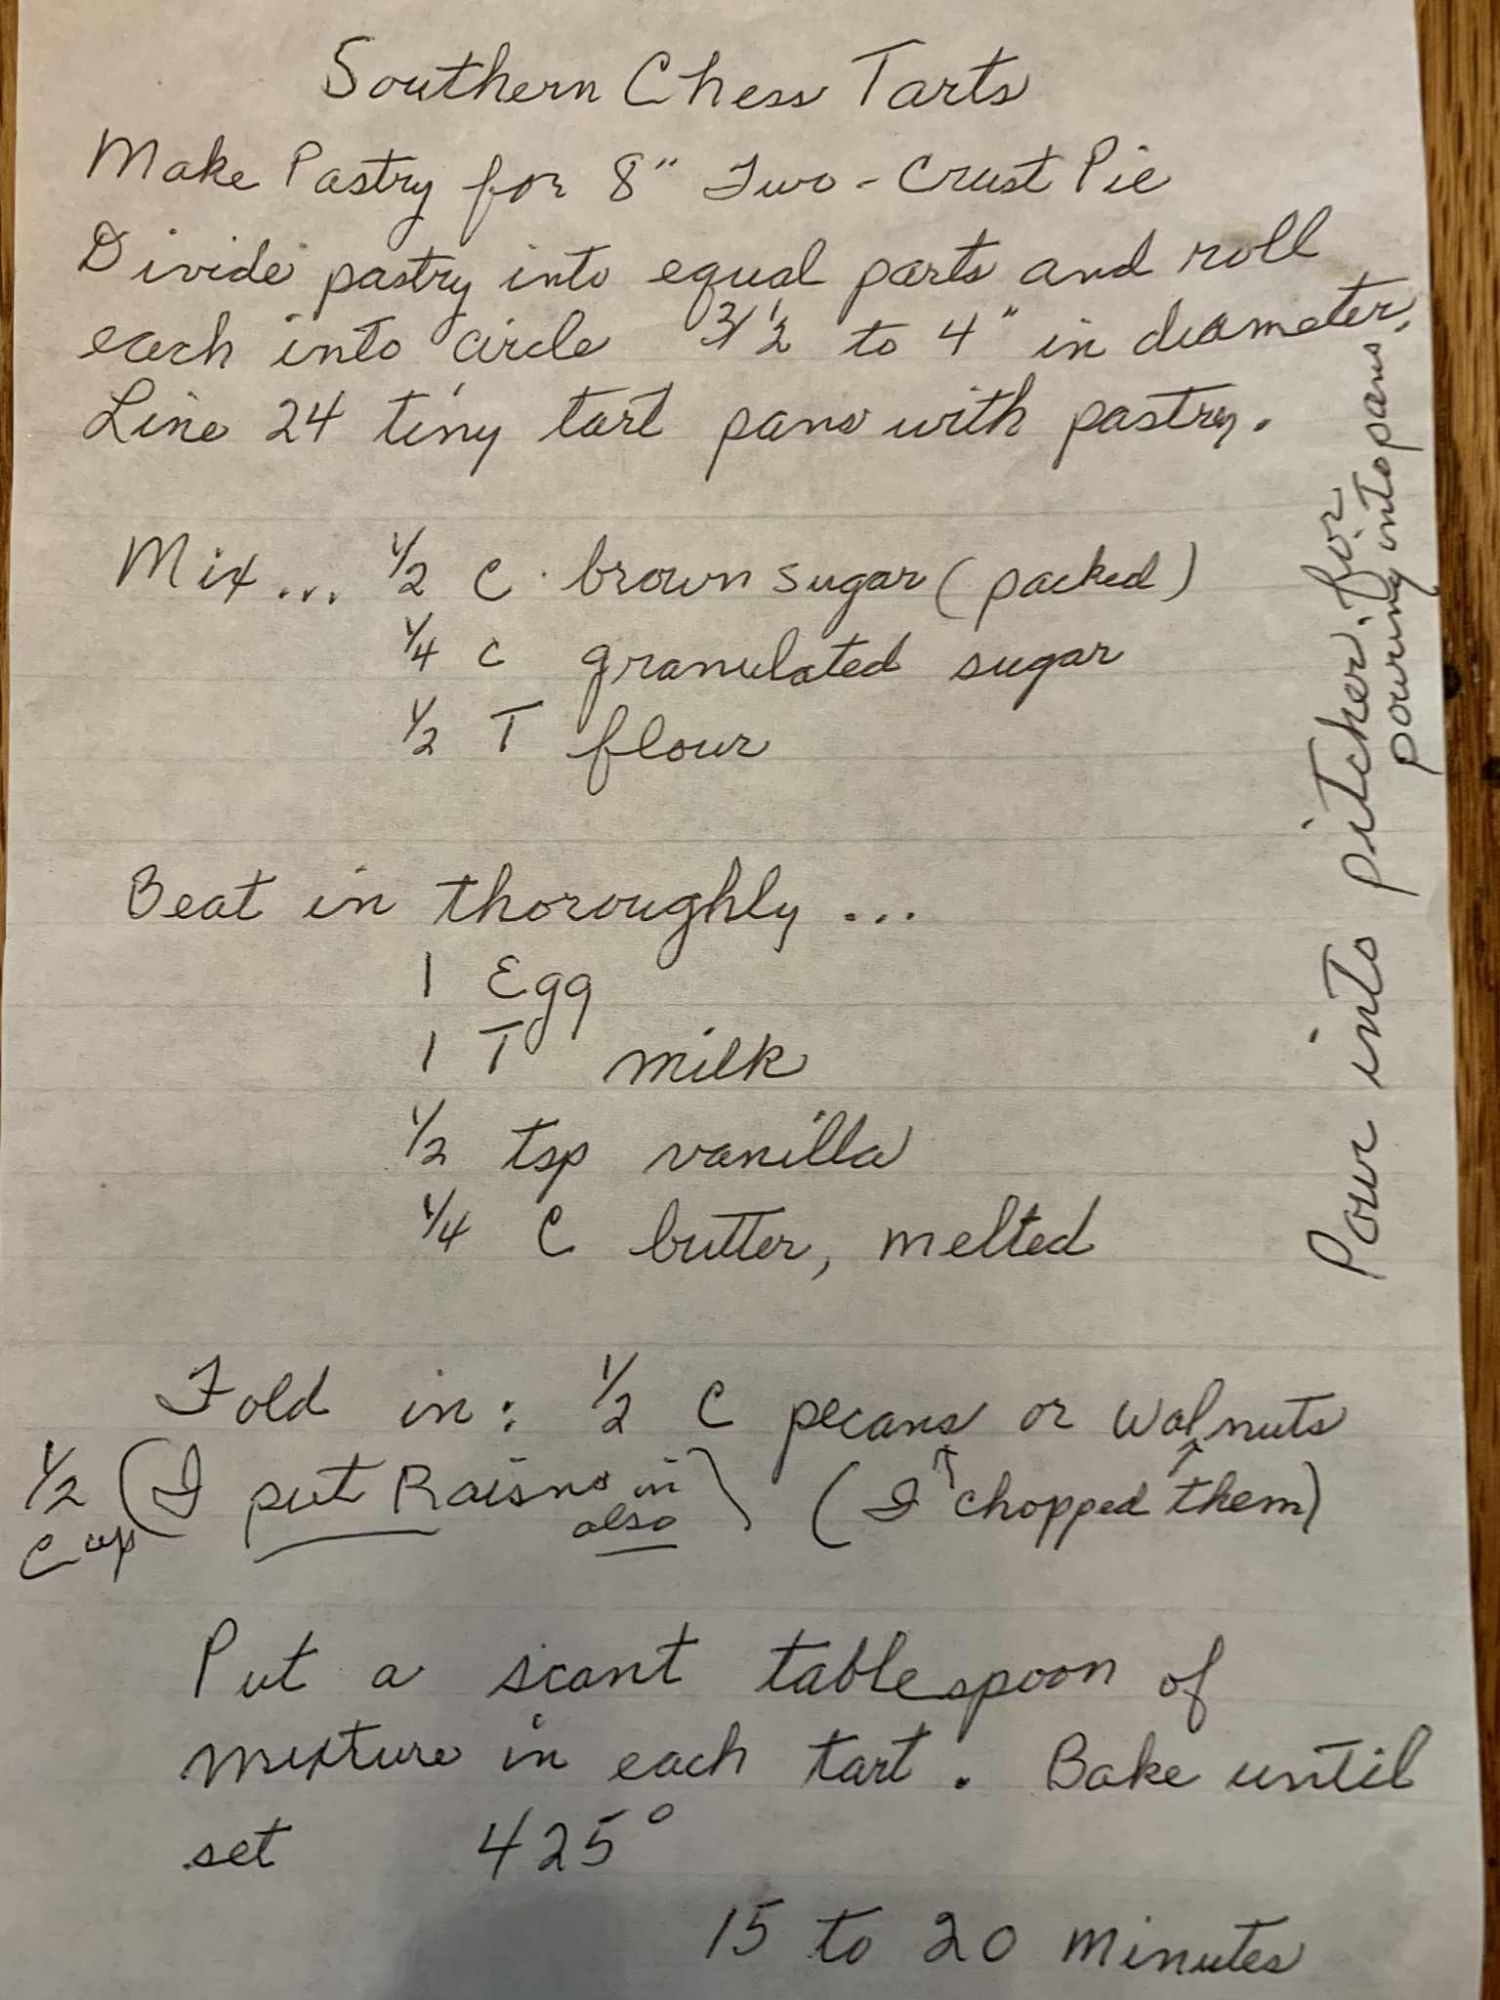 Southern Chess Tarts
Make Pastry for 8" Two-Crust Pie
Divide pastry into equal parts and roll
each into circle 3 1/2 to 4" in diameter.
Line 24 tiny tart pans with pastry.
Mix... 1/2 C. brown sugar (packed)
1/4 c granulated sugar
1/2 T flour
Beat in thoroughly...
1 Egg
1 T milk
1/2 tsp vanilla
1/4 C butter, melted
Fold in: 1/2 C pecans or walnuts
1/2 cup (I put Raisins in also) (I ↑ chopped ↑ them)
Put a scant tablespoon of
mixture in each tart. Bake until
set 425°
15 to 20 minutes
Pour into pitcher for
pouring into pans.